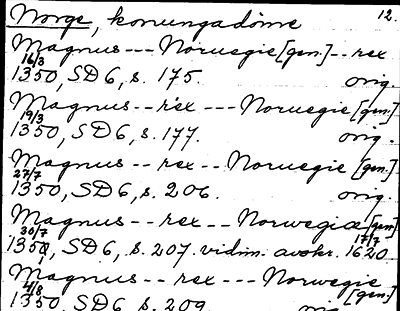 Norge, konungadöme 12.
Magnus --- Noruegie [gen.] -- rex
16/3
1350, SD 6, s. 175. orig.
Magnus -- rex --- Noruegie [gen]
19/3
1350, SD 6, s. 177. orig.
Magnus -- rex -- Noruegie [gen.]
27/7
1350, SD 6, s. 206. orig.
Magnus -- rex --- Norwegiæ [gen]
30/7 17/7
1350, SD 6, s. 207. vidim. avskr. 1620
Magnus -- rex --- Norwegie
4/8 [gen.]
1350, SD 6, s. 209. orig.